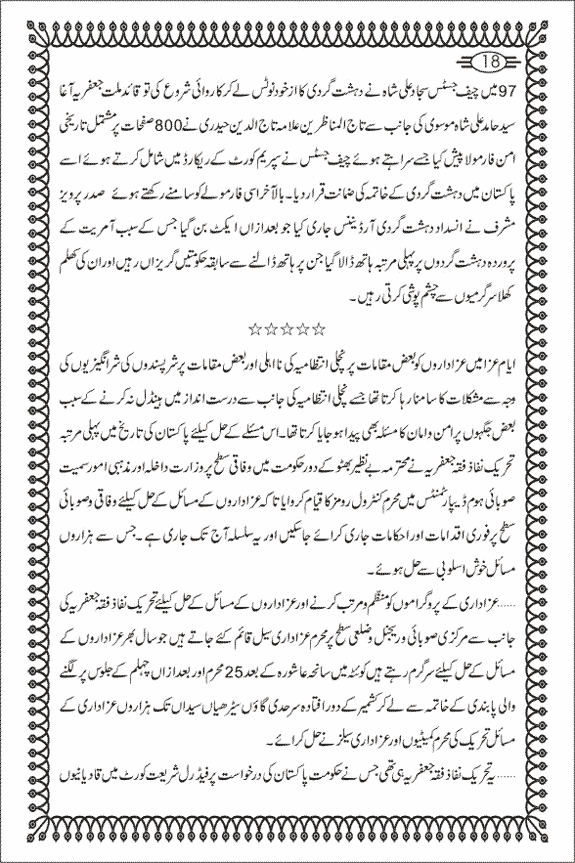 18
97 میں چیف جسٹس سجاد علی شاہ نے دہشت گردی کا از خود نوٹس لے کر کاروائی شروع کی تو قائد ملت جعفریہ آغا
سید حامد علی شاہ موسوی کی جانب سے تاج المناظرین علامہ تاج الدین حیدری نے 800 صفحات پر مشتمل تاریخی
امن فارمولا پیش کیا جسے سراہتے ہوئے چیف جسٹس نے سپریم کورٹ کے ریکارڈ میں شامل کرتے ہوئے اسے
پاکستان میں دہشت گردی کے خاتمہ کی ضمانت قرار دیا۔ بالآخر اسی فارمولے کو سامنے رکھتے ہوئے صدر پرویز
مشرف نے انسداد دہشت گردی آرڈیننس جاری کیا جو بعد ازاں ایکٹ بن گیا جس کے سبب آمریت کے
پروردہ دہشت گردوں پر پہلی مرتبہ ہاتھ ڈالا گیا جن پر ہاتھ ڈالنے سے سابقہ حکومتیں گریزاں رہیں اور ان کی کھلم
کھلا سرگرمیوں سے چشم پوشی کرتی رہیں۔
☆☆☆☆☆
ایام عزا میں عزاداروں کو بعض مقامات پر نچلی انتظامیہ کی نااہلی اور بعض مقامات پر شرپسندوں کی شرانگیزیوں کی
وجہ سے مشکلات کا سامنا رہا کرتا تھا جسے نچلی انتظامیہ کی جانب سے درست انداز میں ہینڈل نہ کرنے کے سبب
بعض جگہوں پر امن و امان کا مسئلہ بھی پیدا ہو جایا کرتا تھا۔ اس مسئلے کے حل کیلئے پاکستان کی تاریخ میں پہلی مرتبہ
تحریک نفاذ فقہ جعفریہ نے محترمہ بے نظیر بھٹو کے دور حکومت میں وفاقی سطح پر وزارت داخلہ اور مذہبی امور سمیت
صوبائی ہوم ڈیپارٹمنٹس میں محرم کنٹرول رومز کا قیام کروایا تاکہ عزاداروں کے مسائل کے حل کیلئے وفاقی و صوبائی
سطح پر فوری اقدامات اور احکامات جاری کرائے جاسکیں اور یہ سلسلہ آج تک جاری ہے۔ جس سے ہزاروں
مسائل خوش اسلوبی سے حل ہوئے۔
.....عزاداری کے پروگراموں کو منظم و مرتب کرنے اور عزاداروں کے مسائل کے حل کیلئے تحریک نفاذ فقہ جعفریہ کی
جانب سے مرکزی صوبائی و ریجنل و ضلعی سطح پر محرم عزاداری سیل قائم کئے جاتے ہیں جو سال بھر عزاداروں کے
مسائل کے حل کیلئے سرگرم رہتے ہیں کوئٹہ میں سانحہ عاشورہ کے بعد 25 محرم اور بعد ازاں چہلم کے جلوس پر لگنے
والی پابندی کے خاتمہ سے لے کر کشمیر کے دور افتادہ سرحدی گاؤں سیڑھیاں سیداں تک ہزاروں عزاداری کے
مسائل تحریک کی محرم کمیٹیوں اور عزاداری سیلز نے حل کرائے۔
.....یہ تحریک نفاذ فقہ جعفریہ ہی تھی جس نے حکومت پاکستان کی درخواست پر فیڈرل شریعت کورٹ میں قادیانیوں